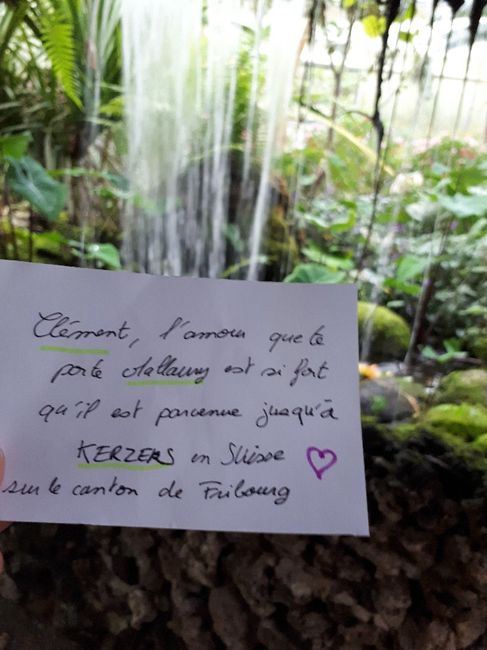 Clément, l'amour que te
porte Mallaury est si fort
qu'il est parvenue jusqu'à
KERZERS en Suisse
sur le canton de Fribourg